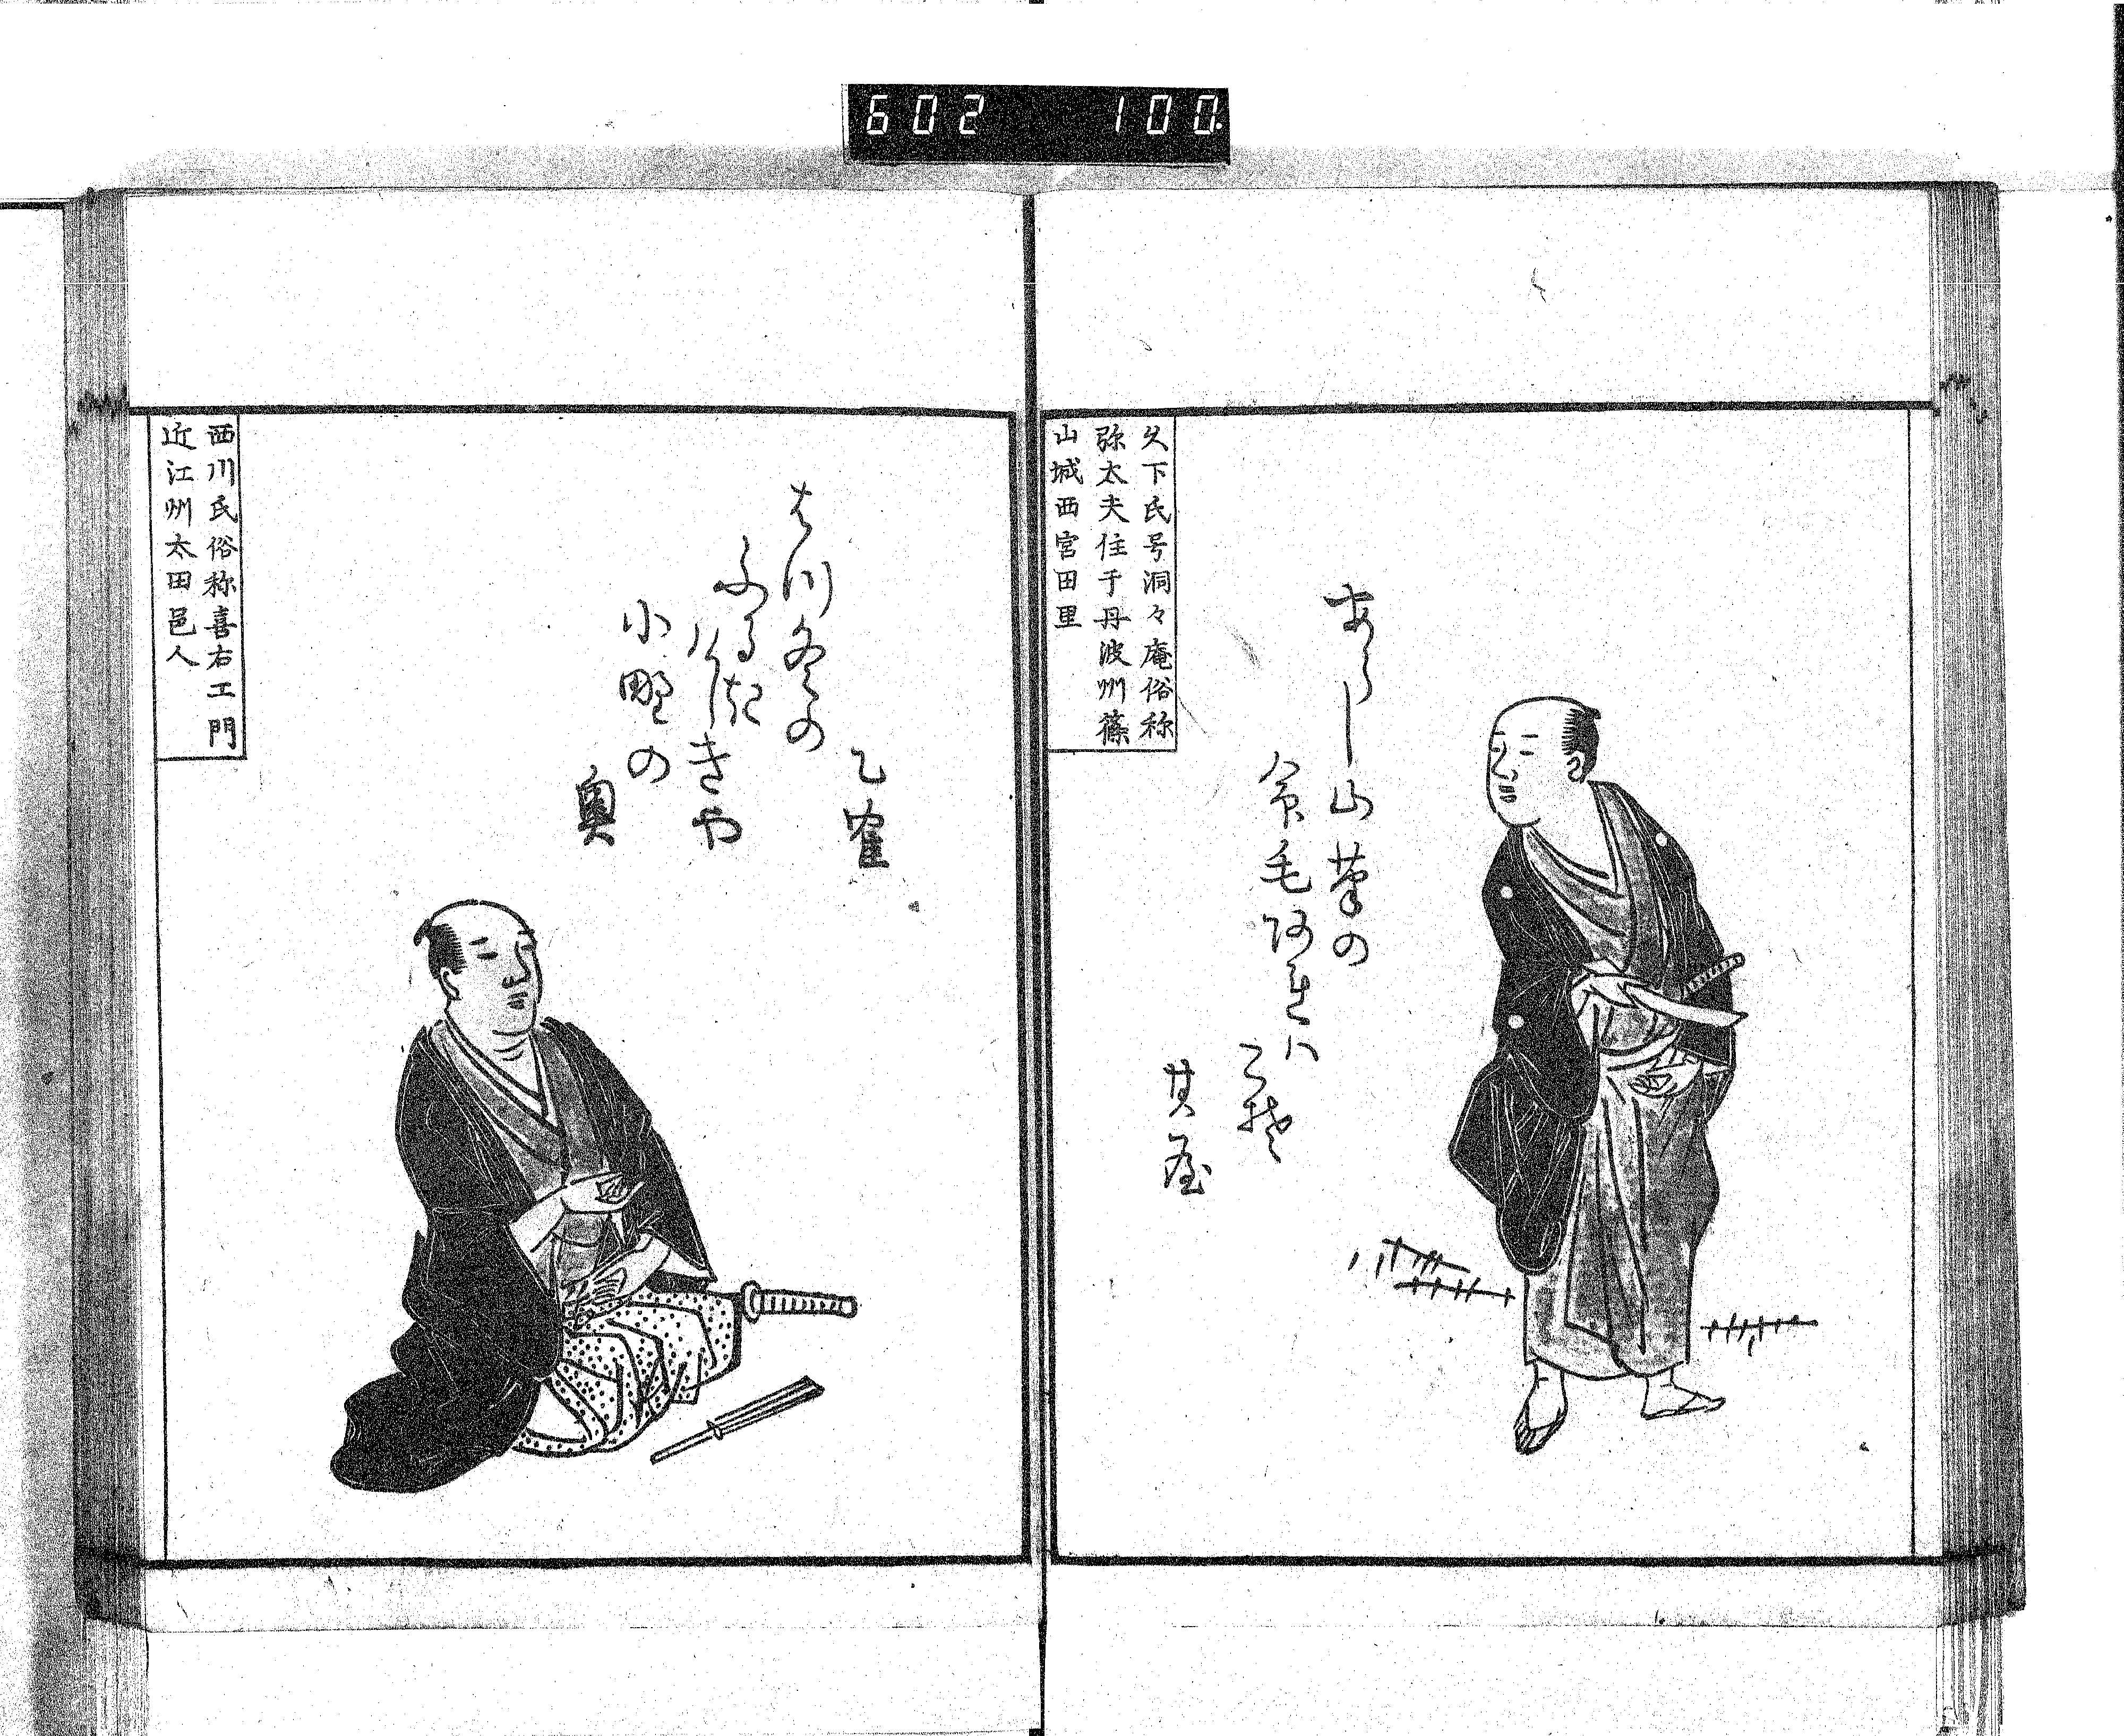 602 100.
久下氏号洞々庵俗称
弥太夫住于丹波州篠
山城西宮田里
あらし山茸の
命毛阿れハ
こそ
其屋
西川氏俗称喜右エ門
近江州太田邑人
乙隺
者川冬の
ふる
きや
小野の
奥